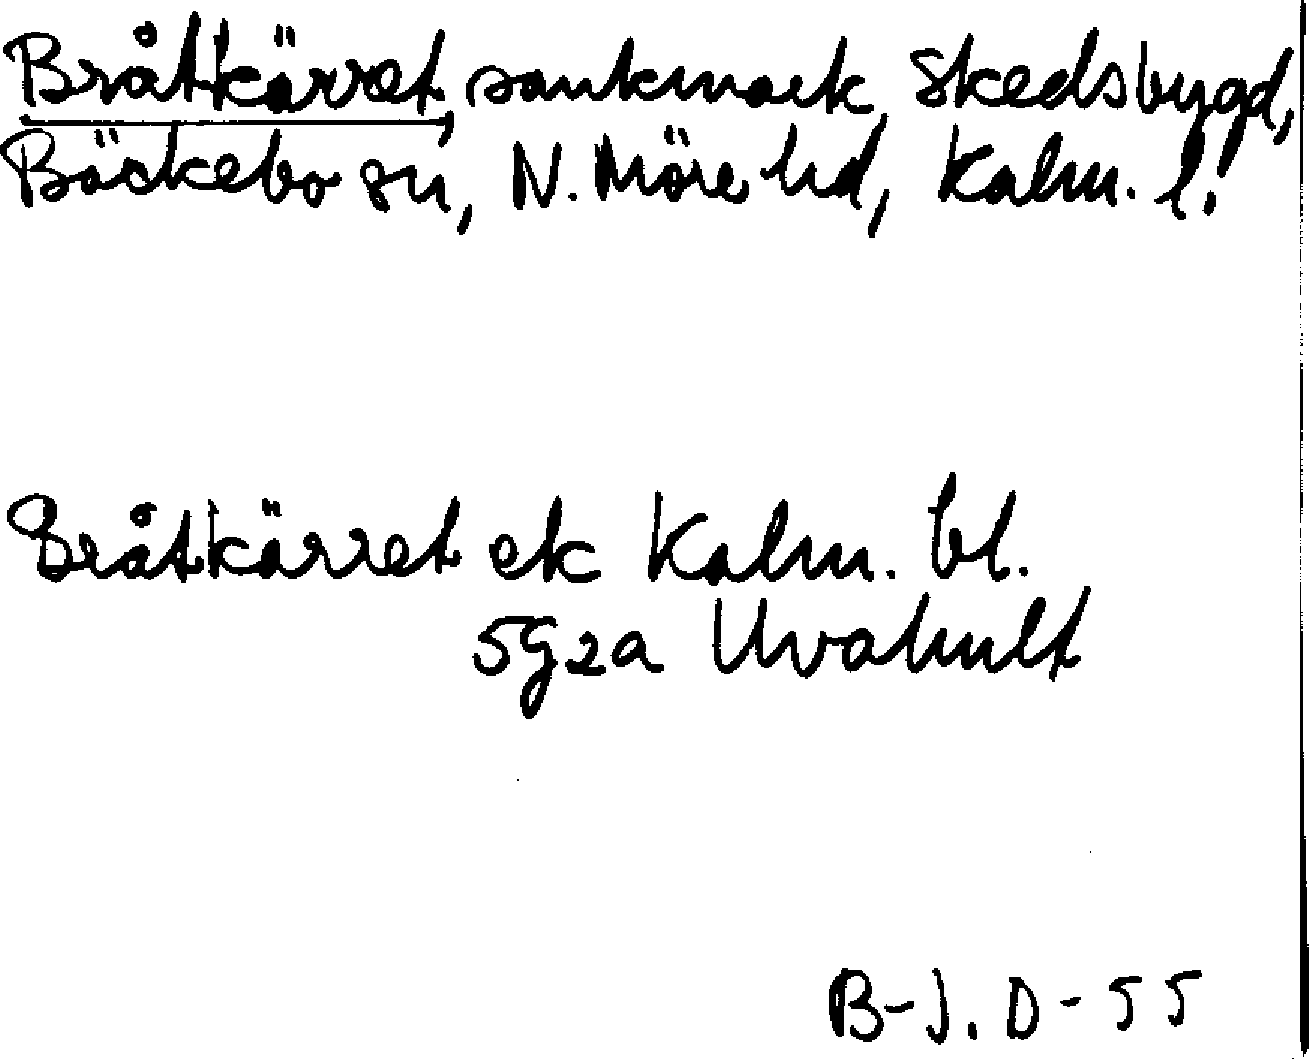 Bråtkärret, sankmark, Skedsbygd,
Bäckebo sn, N. Möre hd, Kalm. l.
Bråtkärret ek Kalm. bl.
5g2a Uvahult
B-J. D-55